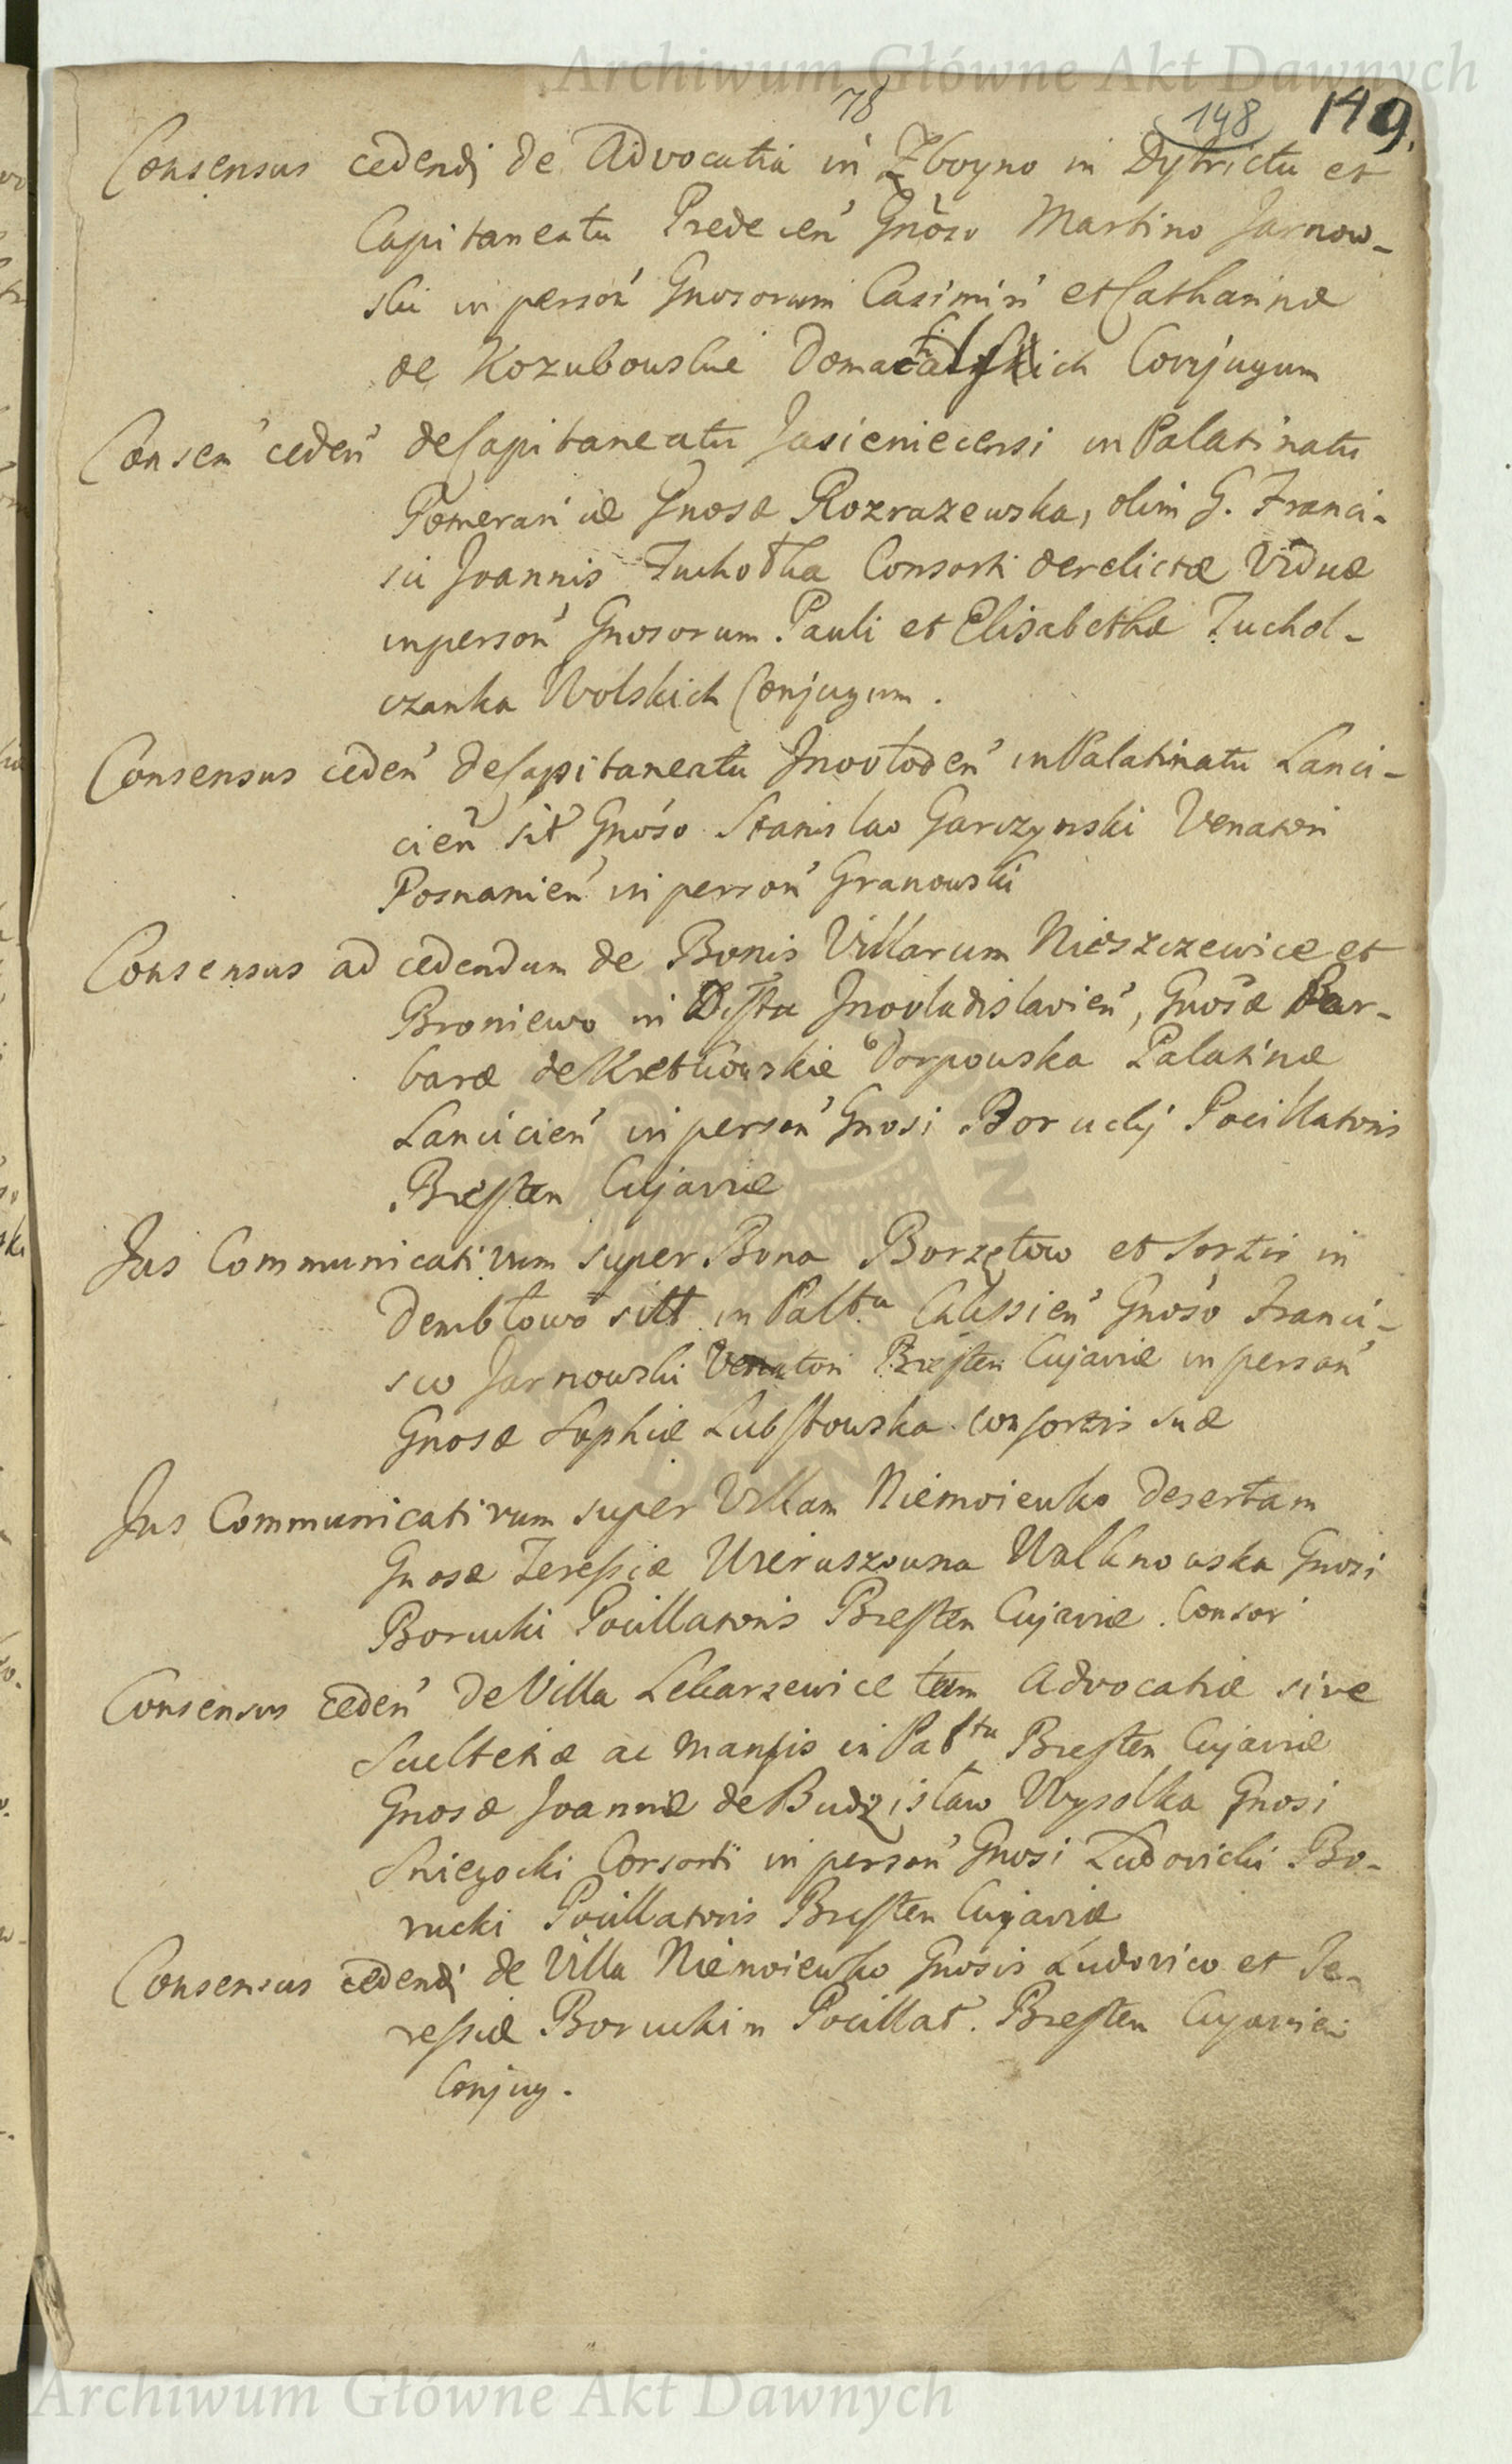 Archiwum Główne Akt Dawnych
78 148 149.
Consensus cedendi de Advocatia in Zboyno in Dystrictu et
Capitaneatu Predecen Gnoso Martino Jarnow-
ski in person Gnosorum Casimiri et Catharinæ
de Kozubowskie Conjugum
Consen ceden de Capitaneatu Jasieniecensi in Palatinatu
Pomeraniæ Gnosæ Rozrazewska, olim G. Franci-
sci Joannis Tuchołka Consorti derelictæ Viduæ
in person Gnosorum Pauli et Elisabethæ Tuchol-
czanka Wolskich Conjugum.
Consensus ceden de Capitaneatu Jnowłoden in Palatinatu Lanci-
cien sit Gnoso Stanislao Garczynski Venatori
Posnanien in person Granowski
Consensus ad cedendum de Bonis Villarum Nieszczewice et
Broniewo in Disttu Jnovladislavien, Gnosæ Bar-
baræ de Kretkowskie Dorpowska Palatinæ
Lancicien in person Gnosi Borucki Pocillatoris
Bresten Cujaviæ
Jus Communicativum super Bona Borzętow et Sortis in
Dembłowo sitt in Palttu Calissien Gnoso Franci-
sco Jarnowski Venatori Bresten Cujaviæ in person
Gnosæ Sophiæ Lubstowska consortis suæ
Jus Communicativum super Villam Niemoiewko desertam
Gnosæ Teressiæ Wieruszowna Walknowska Gnosi
Borucki Pocillatoris Bresten Cujaviæ. Consor
Consensus ceden de Villa Lekarzewice tum Advocatiæ sive
Scultetiæ ac Mansis in Palttu Bresten Cujaviæ
Gnosæ Joannæ de Budzisław Wysolka Gnosi
Sniegocki Consorti in person Gnosi Ludovici Bo-
rucki Pocillatoris Bresten Cujaviæ
Consensus cedendi de Villa Niemoiewko Gnosis Ludovico et Te-
ressiæ Boruckim Pocillat. Bresten Cujavien
Conjug.
Archiwum Główne Akt Dawnych